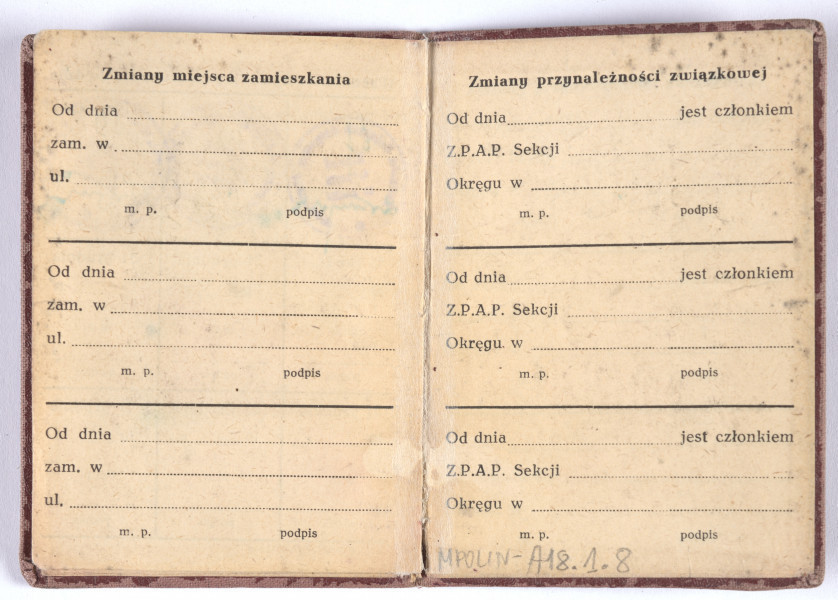 Zmiany miejsca zamieszkania
Od dnia
zam. w
ul.
m. p. podpis
Od dnia
zam. w
ul.
m. p. podpis
Od dnia
zam. w
ul.
m. p. podpis
Zmiany przynależności związkowej
Od dnia jest członkiem
Z.P.A.P. Sekcji
Okręgu w
m. p. podpis
Od dnia jest członkiem
Z.P.A.P. Sekcji
Okręgu w
m. p. podpis
Od dnia jest członkiem
Z.P.A.P. Sekcji
Okręgu w
m. p. podpis
MPOLIN-A18.1.8